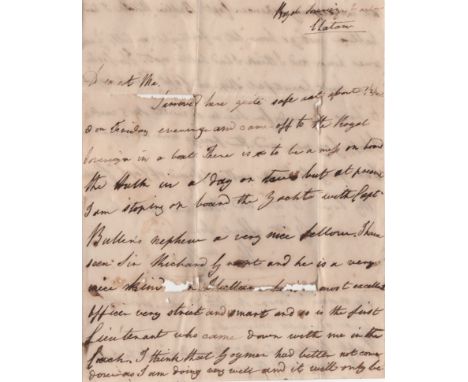 Royal Sovereign
Chatam
Dearest Ma
I arrived here quite safe at about
on Tuesday evening and came off to the Royal
Sovereign in a boat There is to be a mess on board
the Hulk in a day or two but at present
I am stoping on board the Yacht with Capt
Bullen's nephew a very nice fellow. I have
seen Sir Richard Grant and he is a very
nice kind
officer very strict and smart and so is the first
Lieutenant who came down with me in the
Coach. I think that Goymer had better not come
down as I am doing very well and it will only be